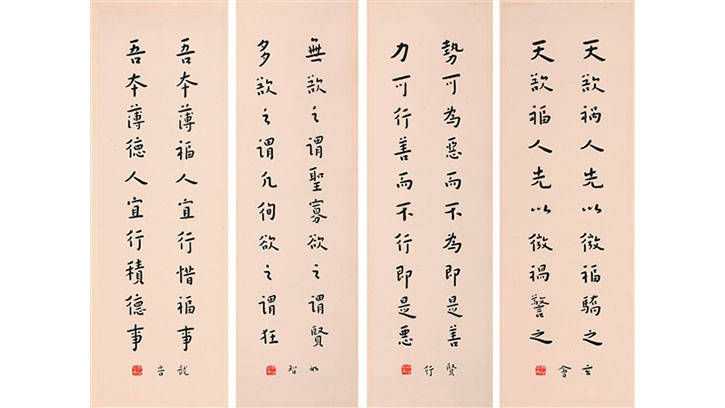 天欲祸人先以微福驕之
天欲福人先以微禍警之
玄會
勢可為惡而不為即是善
力可行善而不行即是悪
賢行
無欲之謂聖寡欲之謂賢
多欲之謂凡徇欲之謂狂
如智
吾本薄福人宜行惜福事
吾本薄德人宜行積德事
龍音